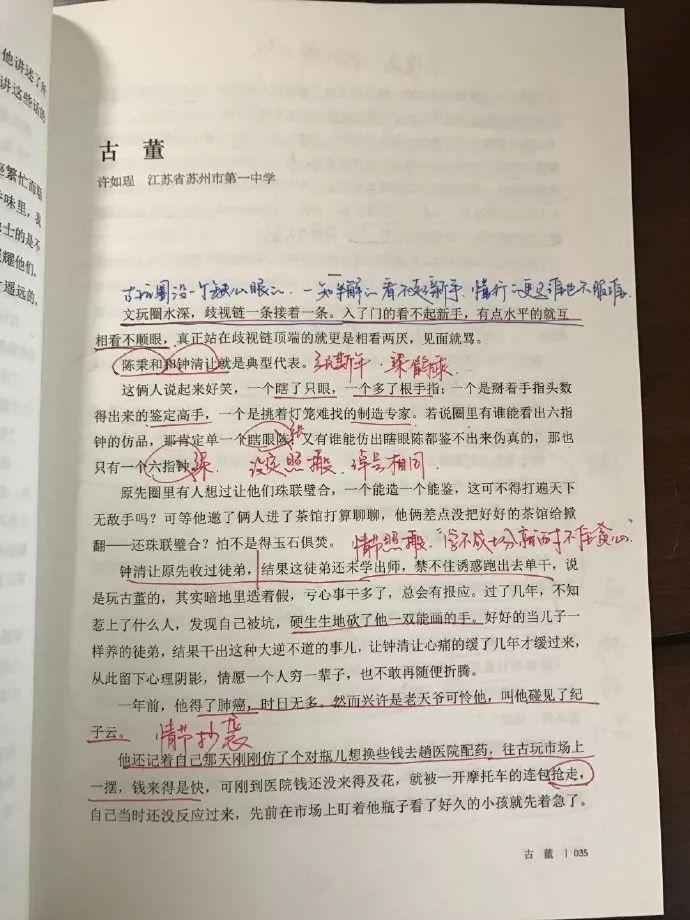 他讲述了所
讲这些话的
繁忙而琐
味里，我
士的是不
耀他们。
遥远的，
古 董
许如珵 江苏省苏州市第一中学
一
文玩圈水深，歧视链一条接着一条。入了门的看不起新手，有点水平的就互
相看不顺眼，真正站在歧视链顶端的就更是相看两厌，见面就骂。
陈秉和和钟清让就是典型代表。
这俩人说起来好笑，一个瞎了只眼，一个多了根手指；一个是掰着手指头数
得出来的鉴定高手，一个是挑着灯笼难找的制造专家。若说圈里有谁能看出六指
钟的仿品，那肯定单一个瞎眼陈，又有谁能仿出瞎眼陈都鉴不出来伪真的，那也
只有一个六指钟。 梁 没完照搬 卓号相同
原先圈里有人想过让他们珠联璧合，一个能造一个能鉴，这可不得打遍天下
无敌手吗？可等他邀了俩人进了茶馆打算聊聊，他俩差点没把好好的茶馆给掀
翻——还珠联璧合？怕不是得玉石俱焚。 情节照搬
钟清让原先收过徒弟，结果这徒弟还未学出师，禁不住诱惑跑出去单干，说
是玩古董的，其实暗地里造着假，亏心事干多了，总会有报应。过了几年，不知
惹上了什么人，发现自己被坑，硬生生地砍了他一双能画的手。好好的当儿子一
样养的徒弟，结果干出这种大逆不道的事儿，让钟清让心痛的缓了几年才缓过来，
从此留下心理阴影，情愿一个人穷一辈子，也不敢再随便折腾。
一年前，他得了肺癌，时日无多。然而兴许是老天爷可怜他，叫他碰见了纪
子云。 情节抄袭
他还记着自己那天刚刚仿了个对瓶儿想换些钱去趟医院配药，往古玩市场上
一摆，钱来得是快，可刚到医院钱还没来得及花，就被一开摩托车的连包抢走，
自己当时还没反应过来，先前在市场上盯着他瓶子看了好久的小孩就先着急了。
古 董 | 035